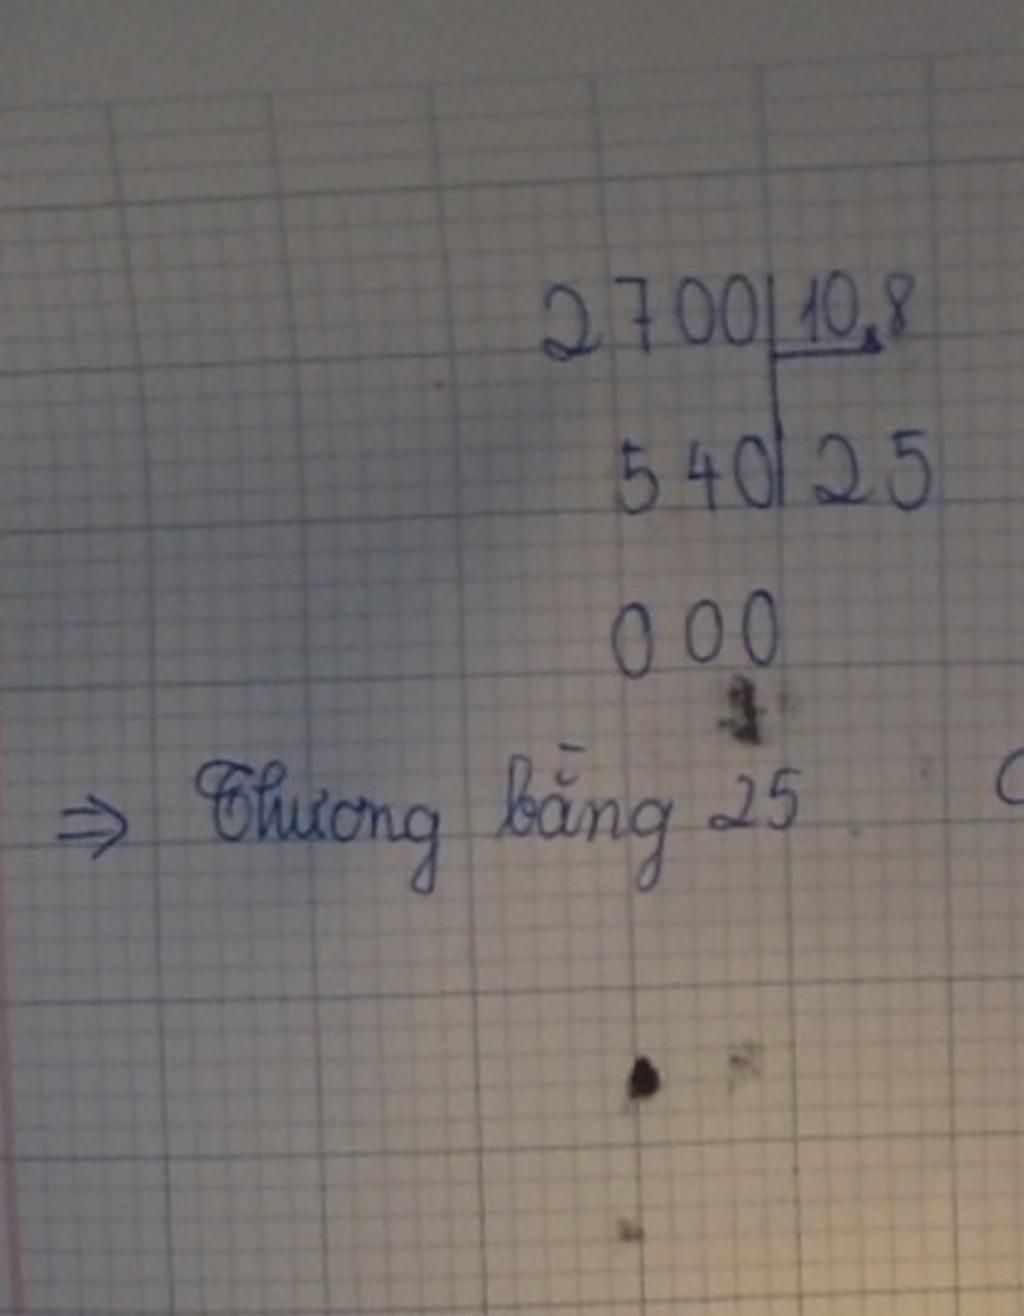 2700 10,8
540 25
000
⇒ Thương bằng 25